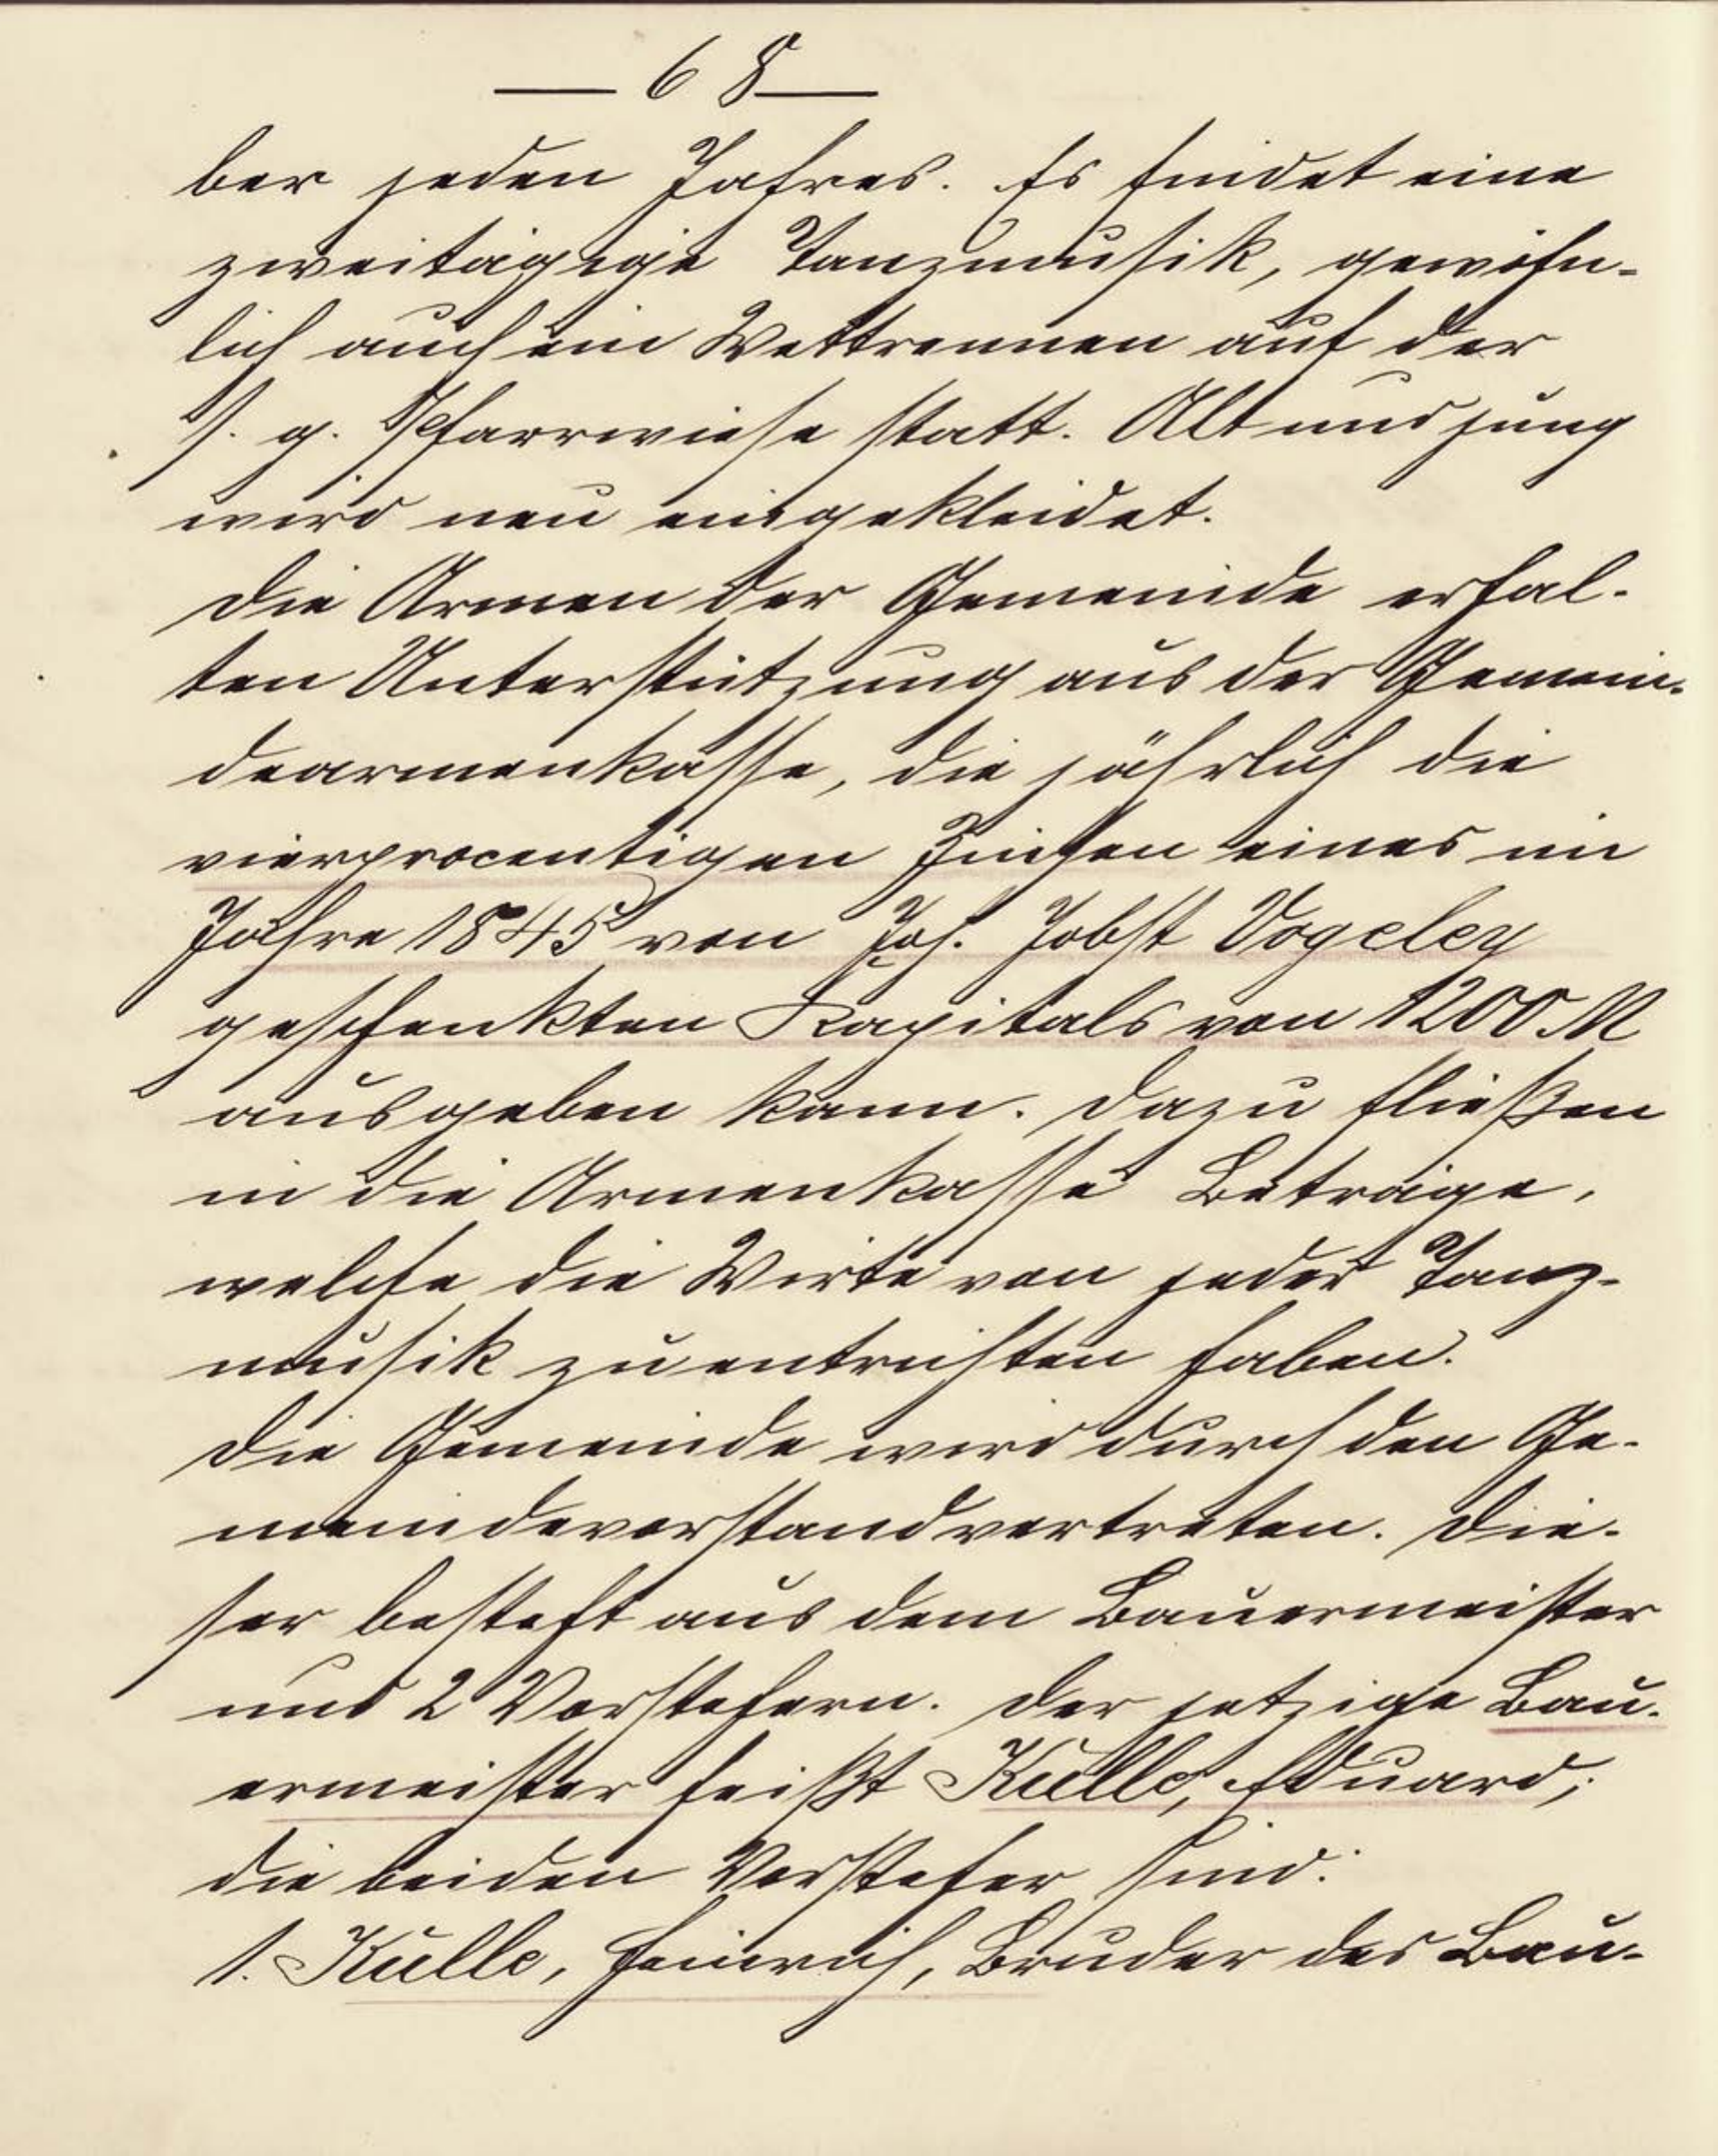 — 68 —
ber jeden Jahres. Es findet eine
zweitägige Tanzmusik, gewöhn-
lich auch ein Wettrennen auf der
s. g. Pfarrwiese statt. Alt und jung
wird neu eingekleidet.
Die Armen der Gemeinde erhal-
ten Unterstützung aus der Gemein-
dearmenkasse, die jährlich die
vierprocentigen Zinsen eines im
Jahre 1845 von Joh. Jobst Vogeley
geschenkten Kapitals von 1200 M
ausgeben kann. Dazu fließen
in die Armenkasse Beträge,
welche die Wirte von jeder Tanz-
musik zu entrichten haben.
Die Gemeinde wird durch den Ge-
meindevorstand vertreten. Die-
ser besteht aus dem Bauermeister
und 2 Vorstehern. Der jetzige Bau-
ermeister heißt Külle, Eduard;
die beiden Vorsteher sind:
1. Külle, Heinrich, Bruder des Bau-